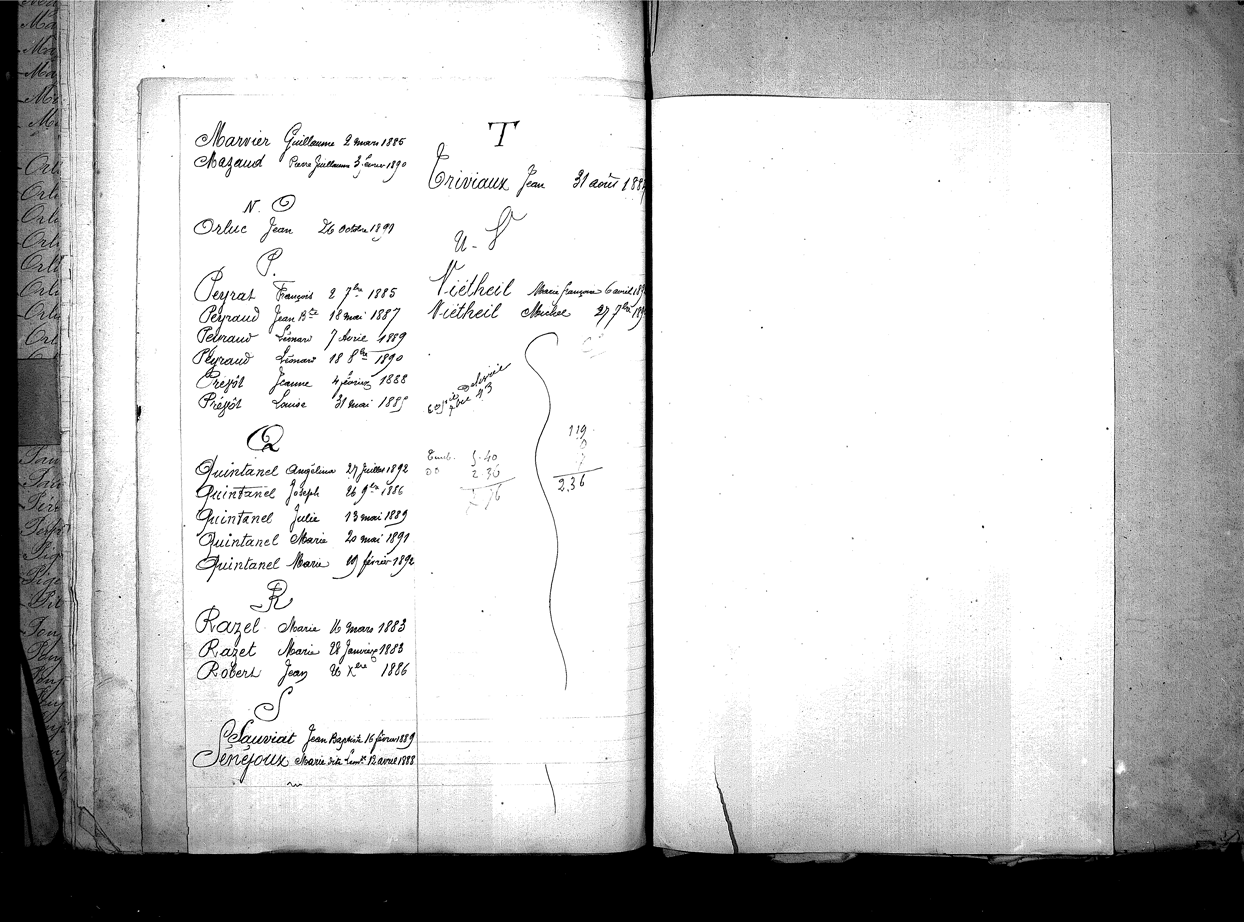 Marvier Guillaume 2 mars 1885
Mazaud Pierre Guillaume 3 février 1890
N. O
Orluc Jean 26 octobre 1891
P.
Peyrat François 2 7bre 1885
Peyraud Jean Bte 18 mai 1887
Peyraud Léonard 7 Avril 1889
Peyraud Léonard 18 8bre 1890
Prépôt Jeanne 4 février 1888
Prépôt Louise 31 mai 1885
Q
Quintanel Angélina 27 Juillet 1892
Quintanel Joseph 26 9bre 1886
Quintanel Julie 13 mai 1889
Quintanel Marie 20 mai 1891
Quintanel Marie 19 février 1892
R
Razel Marie 16 mars 1883
Razet Marie 28 Janvier 1883
Robert Jean 26 Xbre 1886
S
Sauviat Jean Baptiste 16 février 1889
Sénéjoux Marie dite 12 avril 1888
T
Triviaux Jean 31 août 188
U - V
Viétheil Marie françoise 6 avril
Viétheil Michel 27 7bre
délivrée
93
119
Timb. 5.40
2 36
2.36
76